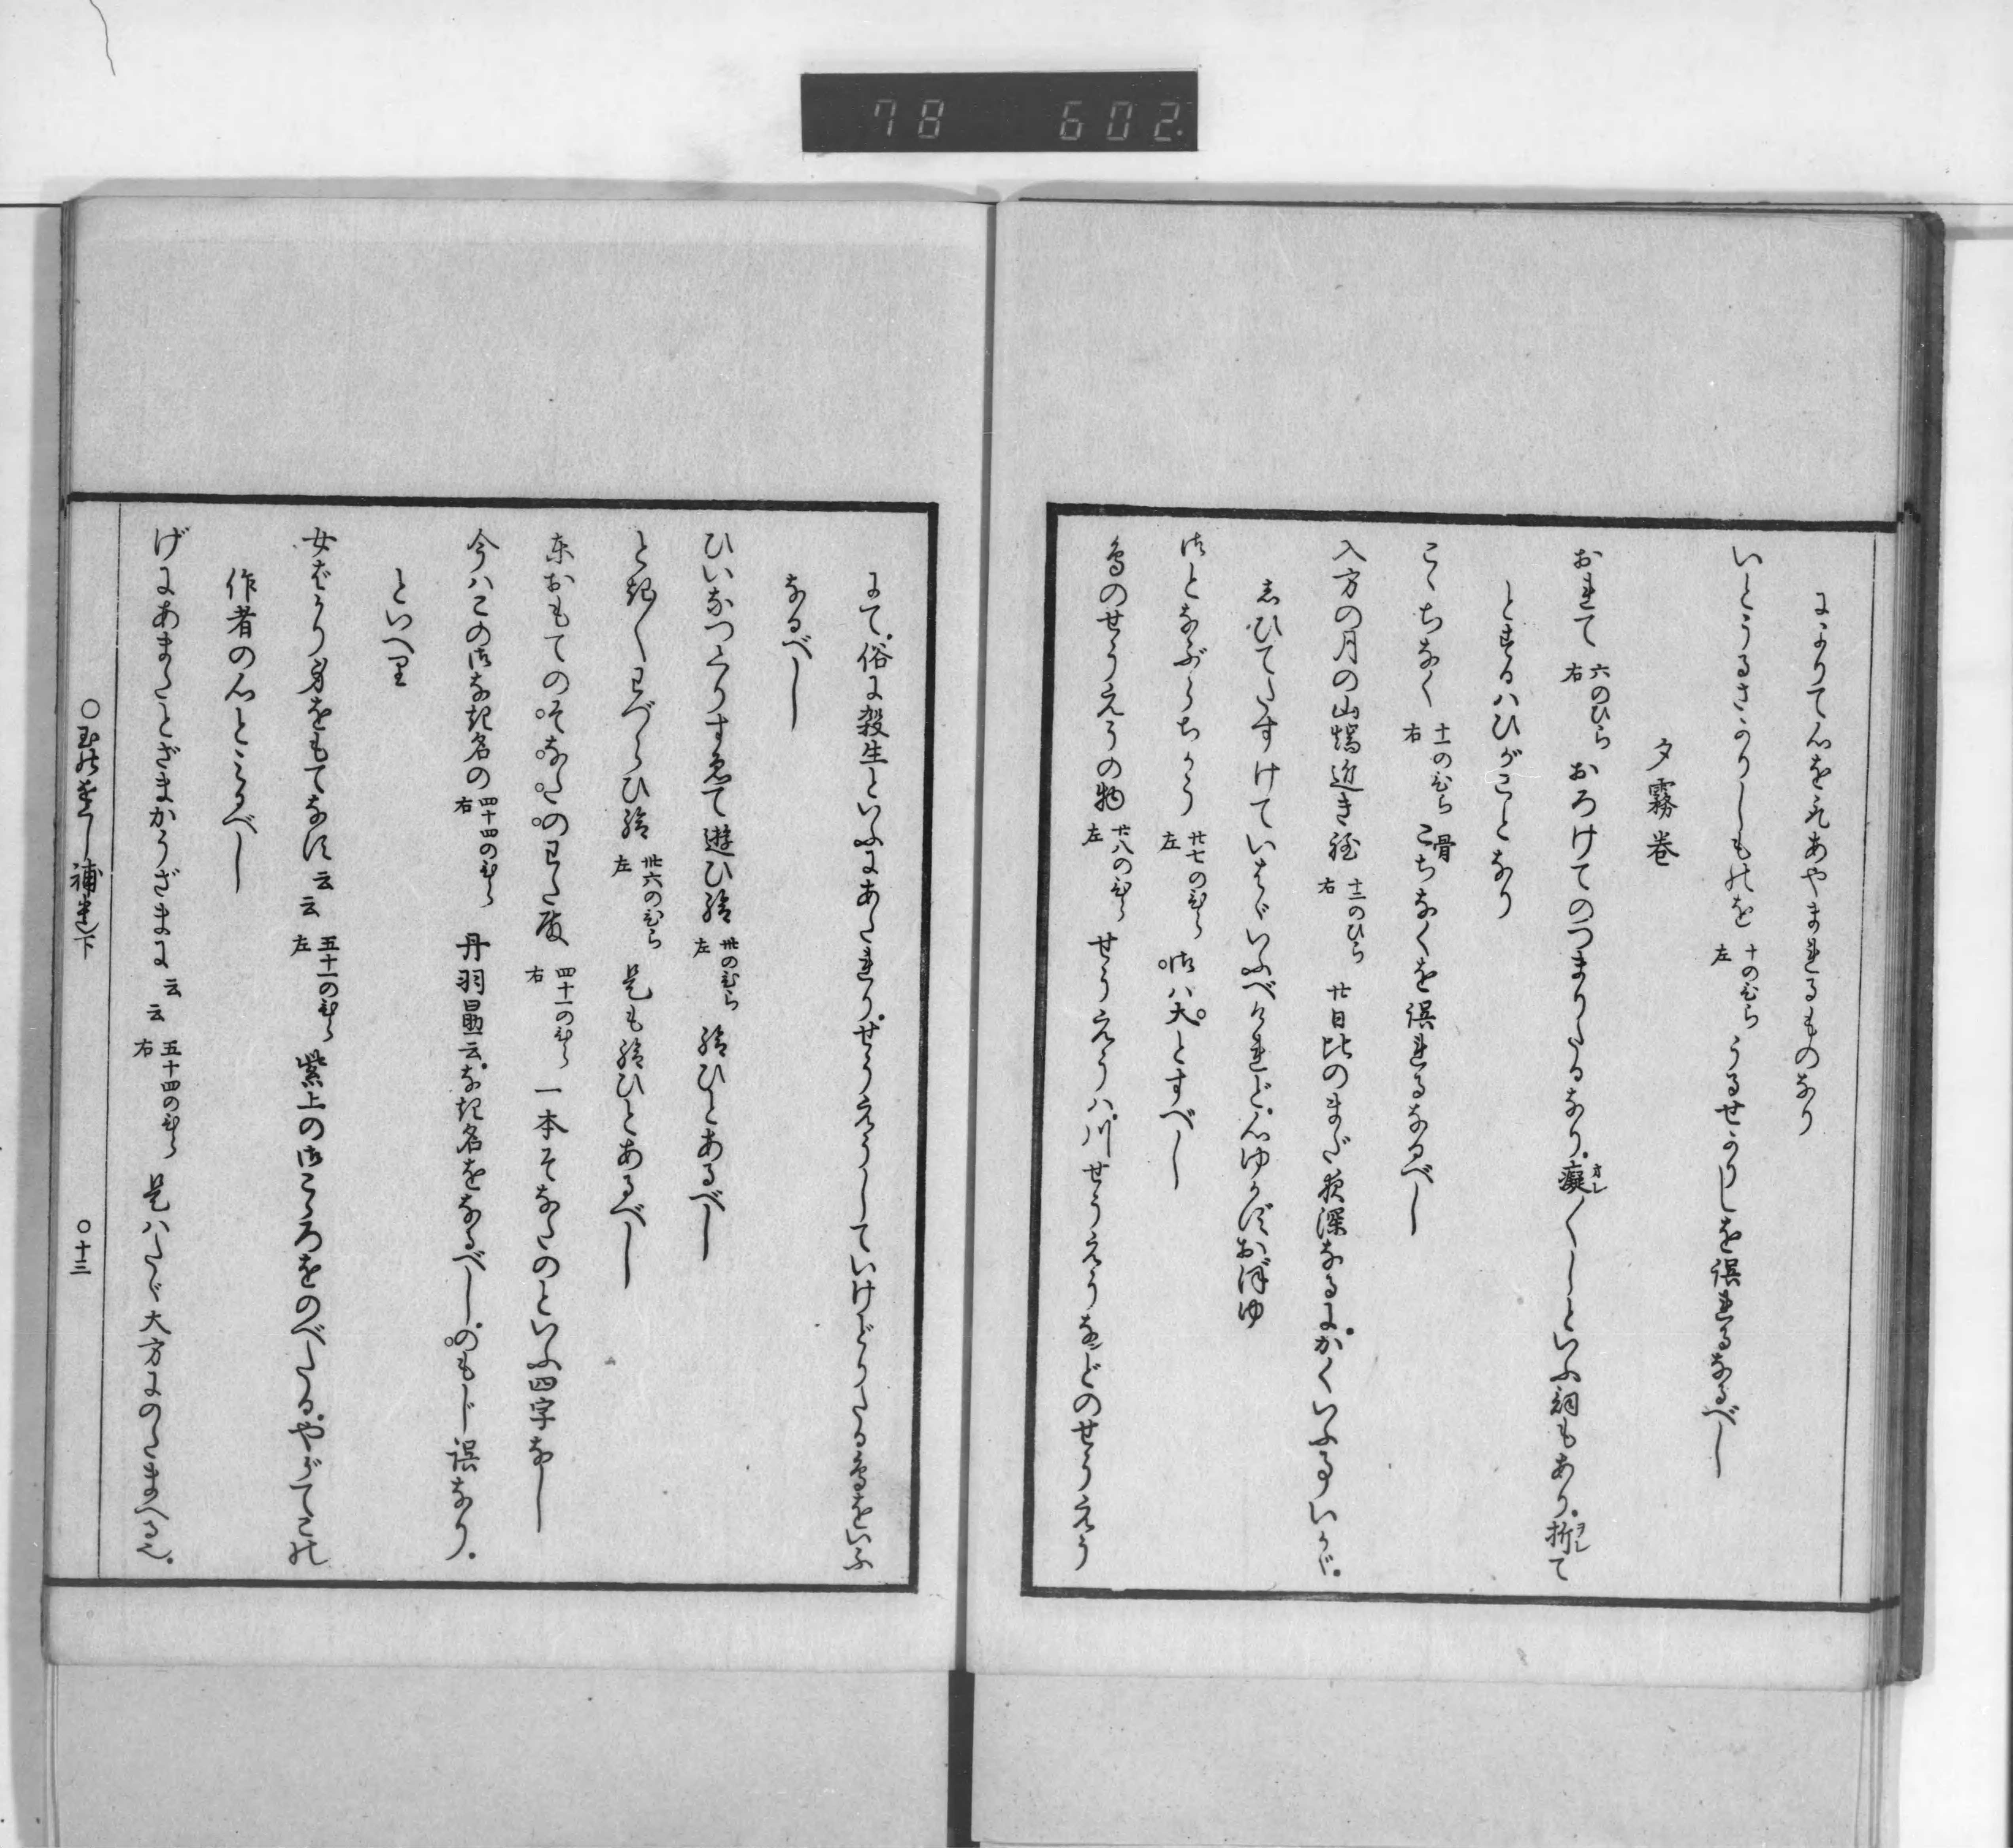 78 602.
によりて心を見あやまれるものなり
いとうるさかりしものを 十のひら左 うるせかりしを誤れるなるべし
夕霧巻
おれて 六のひら右 おろけてのつまりたるなり。癡オレ〳〵しといふ詞もあり。折ヲレて
とするハひがことなり
こゝちなく 十一のひら右 骨こちなくを誤れるなるべし
入方の月の山端近き程 十二のひら右 廿日比のまだ夜深なるに。かくいふるいかゞ。
しひてたすけていはゞいふべけれど。心ゆかずおぼゆ
御となぶらちかう 廿七のひら左 御ハ大とすべし
鳥のせうえうの物 廿八のひら左 せうえうハ。川せうえうなどのせうえう
にて。俗に殺生といふにあたれり。せうえうしていけどりたる鳥をいふ
なるべし
ひいなつくりすゑて遊ひ給 卅のひら左 給ひしとあるべし
とき〴〵わづらひ給 卅六のひら左 是も給ひしとあるべし
東おもてのそなたのわた殿 四十一のひら右 一本そなたのといふ四字なし
今ハこの御なき名の 四十四のひら右 丹羽勗云。なき名をなるべし。のもじ誤なり。
といへり
女ばかり身をもてなす云云 五十一のひら左 紫上の御こゝろをのべたる。やがてこの
作者の心としるべし
げにあまたとざまかうざまに云云 五十四のひら右 是ハたゞ大方にのたまへる也。
○玉のをくし補遺下 ○十三